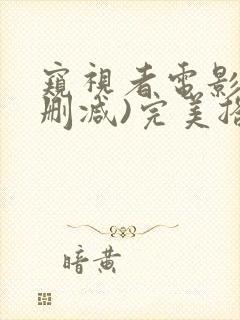 窥视者電影
删减)完美
暗黄